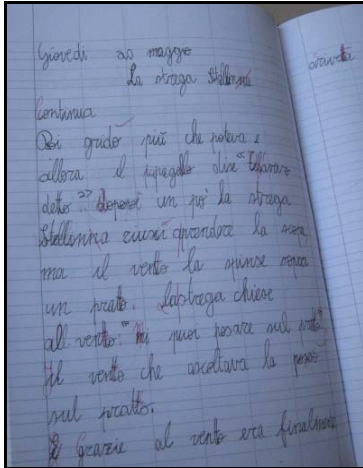 Giovedì 20 maggio
La strega Stellinna
continua
Poi gridò più che poteva e
allora il pipegello disse "
detto"? dopo un pò la strega
Stellinna riuscì aprendere la scopa
ma il vento la spinse sopra
un pratto. Lastrega chiese
all vento:" mi puoi posare sul pratto"
il vento che ascoltava la posò
sul pratto.
E grazie al vento era finalmente
arivata